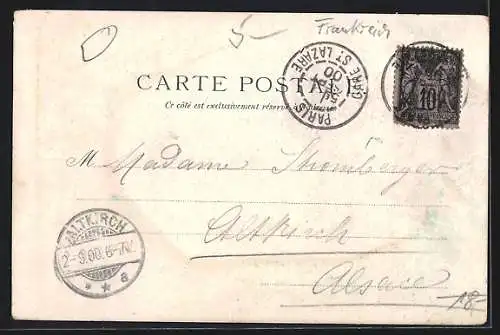 5-
Frankreich
CARTE POSTALE
Ce côté est exclusivement réservé à
PARIS
GARE ST LAZARE
00
10
M Madame Stromberger
Altkirch
Alsace
ALTKIRCH
2-9.00.6-7N.
* * a
18-